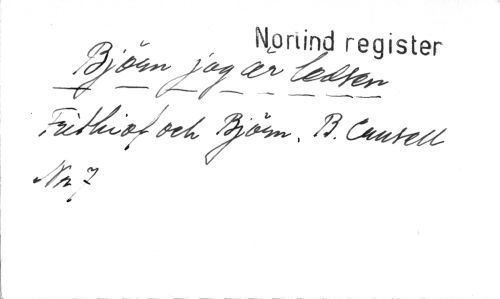 Norlind register
Björn jag är ledsen
Frithiof och Björn. B. Crusell
No 7